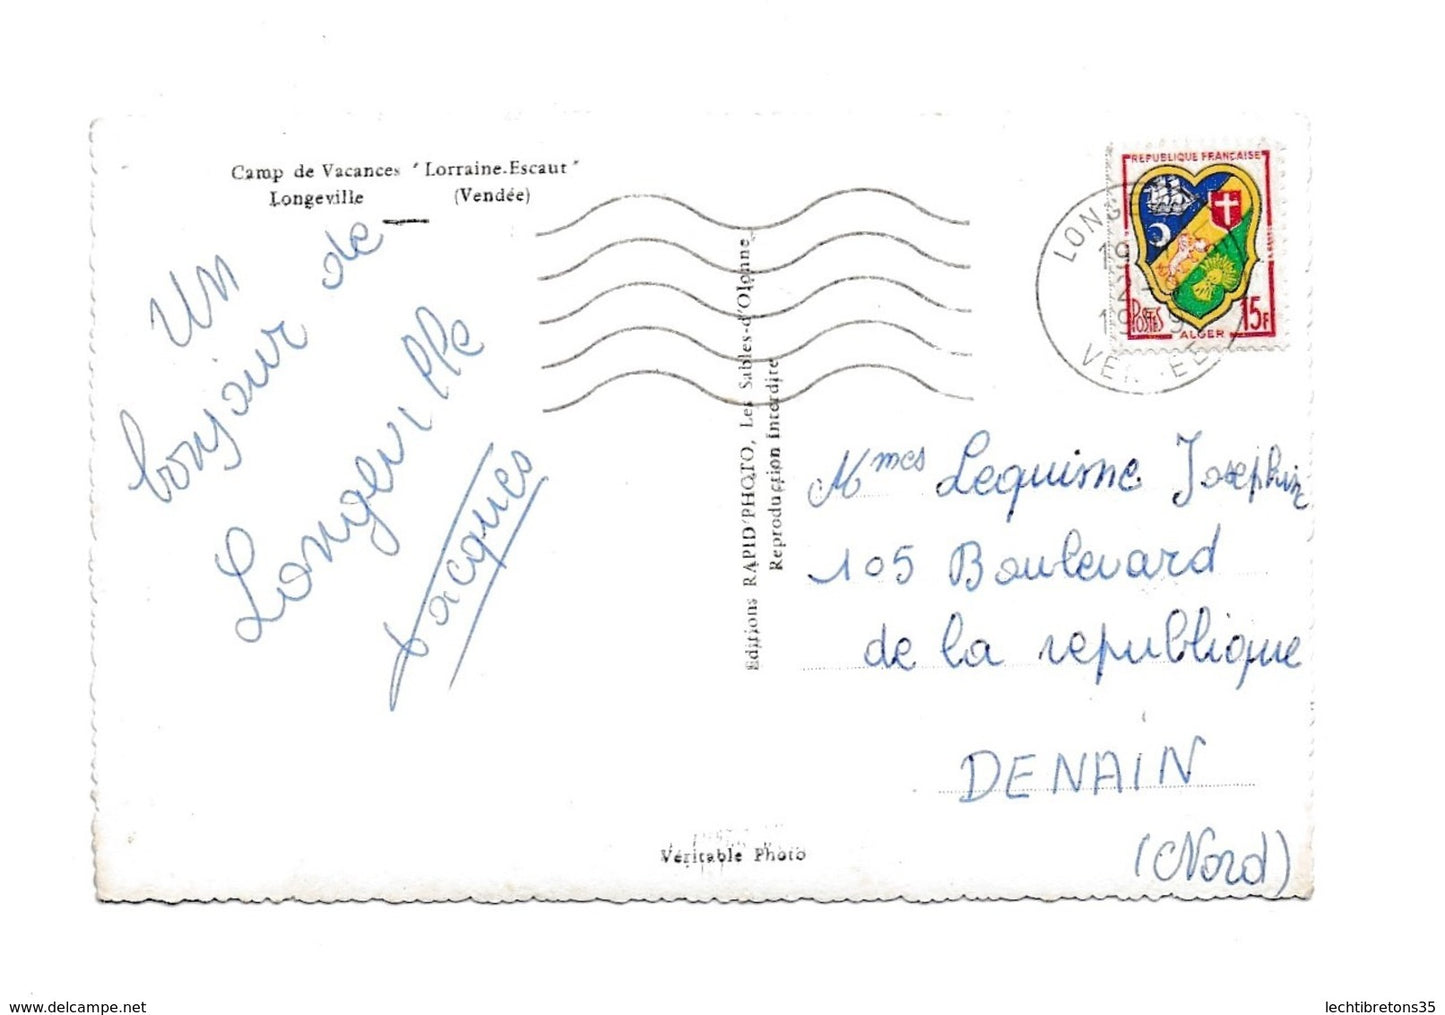 Camp de Vacances "Lorraine-Escaut"
Longeville (Vendée)
Un
bonjour de
Longeville
Jacques
Editions RAPID'PHOTO, Les Sables-d'Olonne
Reproduction interdite
REPUBLIQUE FRANÇAISE
POSTES
15F
ALGER
Mmes Lequisme Josephin
105 Boulevard
de la republique
DENAIN
(Nord)
Véritable Photo
www.delcampe.net
lechtibretons35